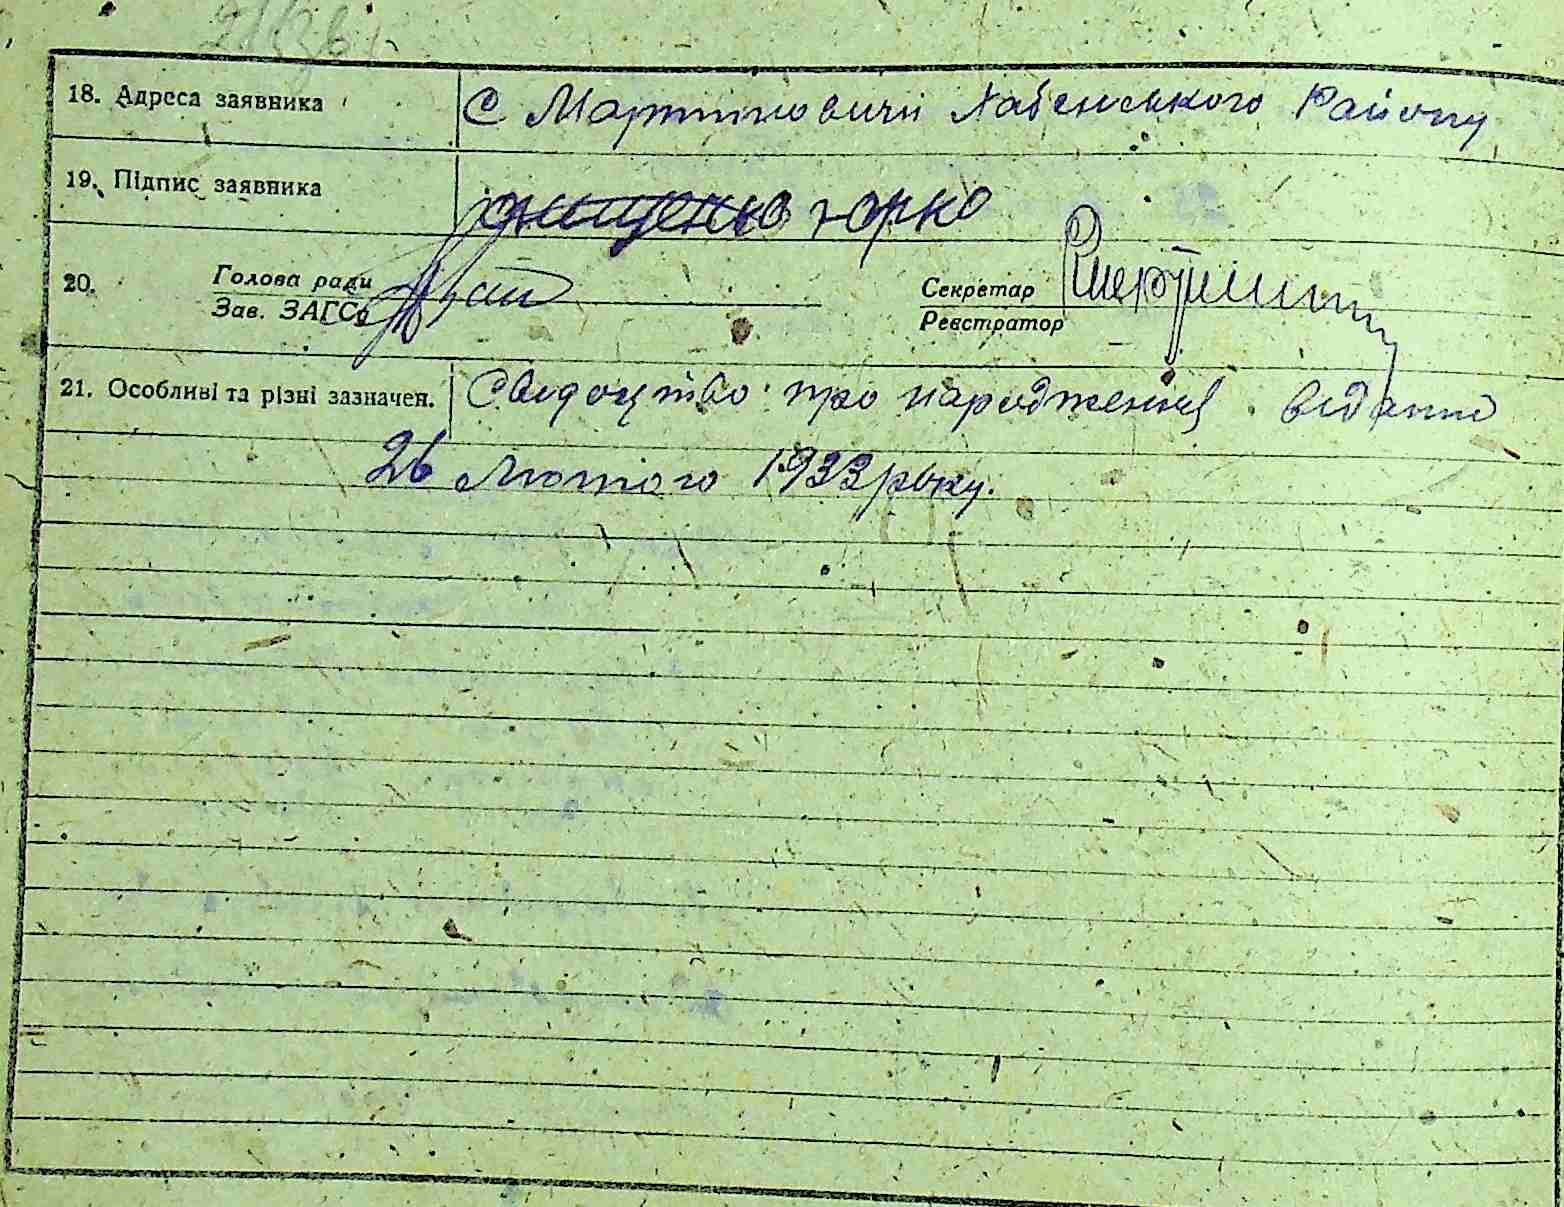 18. Адреса заявника С Мартиновичи Хабенського Району
19. Підпис заявника Онищенко Юрко
20. Голова ради Секретар
Зав. ЗАГСʼу Реєстратор
21. Особливі та різні зазначен. Свидоцтво про народження видано
26 Лютого 1933 року.